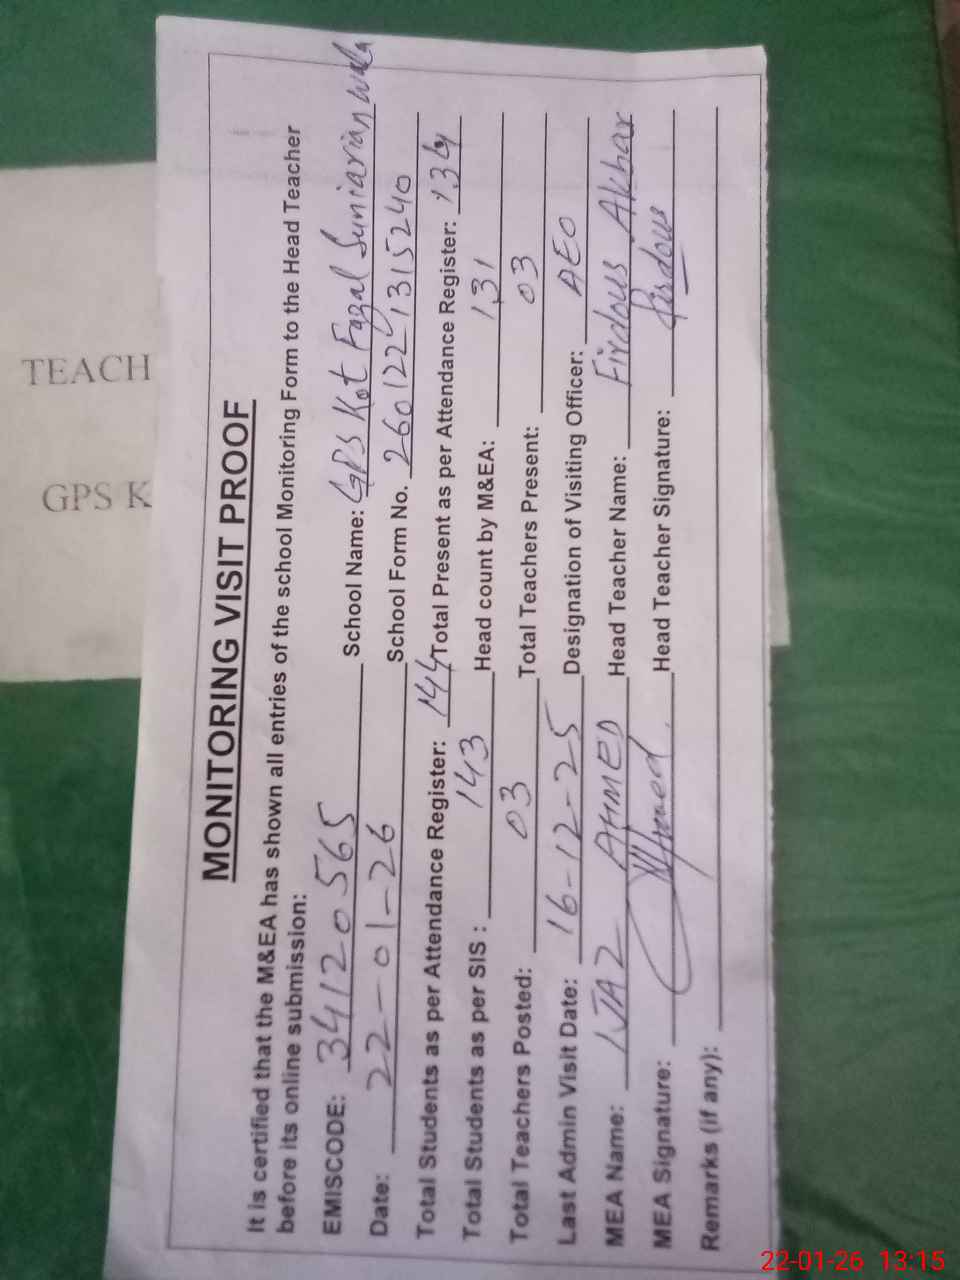 MONITORING VISIT PROOF
It is certified that the M&EA has shown all entries of the school Monitoring Form to the Head Teacher
before its online submission:
EMISCODE: 34120565 School Name: GPS Kot Fazal Suniarian wala
Date: 22-01-26 School Form No. 2601221315240
Total Students as per Attendance Register: 144 Total Present as per Attendance Register: 134
Total Students as per SIS : 143 Head count by M&EA: 131
Total Teachers Posted: 03 Total Teachers Present: 03
Last Admin Visit Date: 16-12-25 Designation of Visiting Officer: AEO
MEA Name: IJAZ AHMED Head Teacher Name: Firdous Akhar
MEA Signature: Ahmed Head Teacher Signature: firdous
Remarks (if any):
TEACH
GPS K
22-01-26 13:15